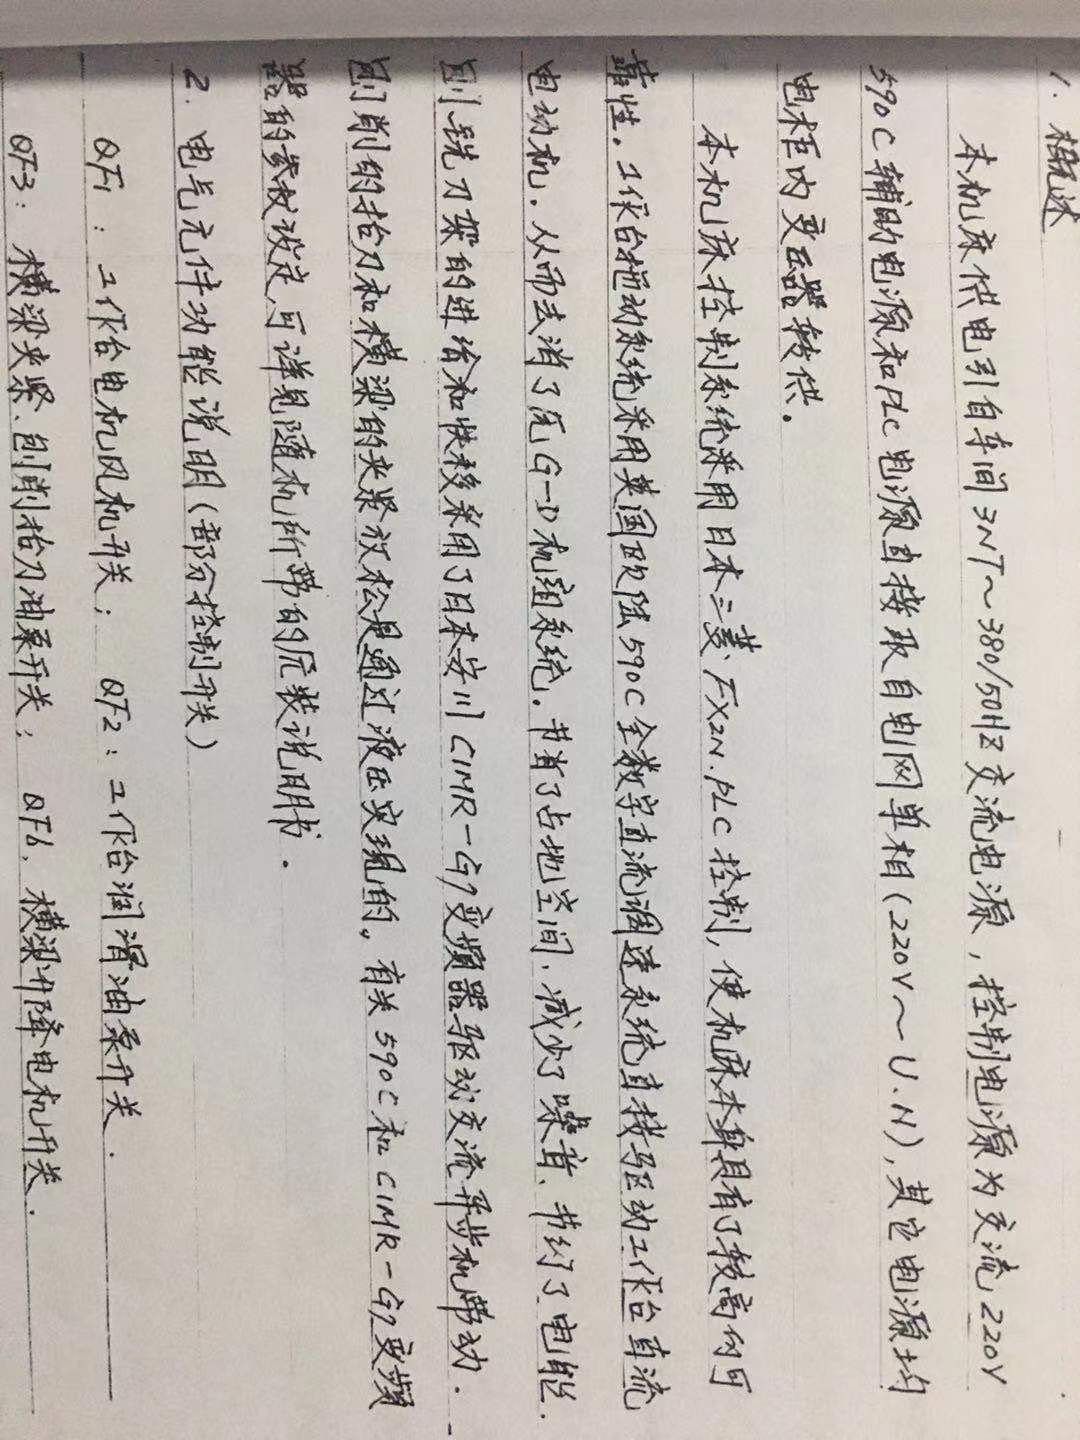 1. 概述
本机床供电引自车间3NT～380/50HZ交流电源，控制电源为交流220V
590C辅助电源和PLC电源直接取自电网单相(220V～U.N),其它电源均
电柜内变压器转供.
本机床控制系统采用日本三菱FX2N.PLC控制,使机床本身具有了较高的可
靠性.工作台拖动系统采用英国欧陆590C全数字直流调速系统直接驱动工作台直流
电动机.从而去消了旧G-D机组系统.节省了占地空间.减少了噪音、节约了电能.
刨、铣刀架的进给和快移采用了日本安川CIMR-G7变频器驱动交流异步机带动.
刨削的抬刀和横梁的夹紧放松是通过液压实现的。有关590C和CIMR-G7变频
器的参数设定,可详见随机所带的原装说明书.
2. 电气元件功能说明(部分控制开关)
QF1：工作台电机风机开关； QF2：工作台润滑油泵开关.
QF3：横梁夹紧、刨削抬刀油泵开关； QF6.横梁升降电机开关.